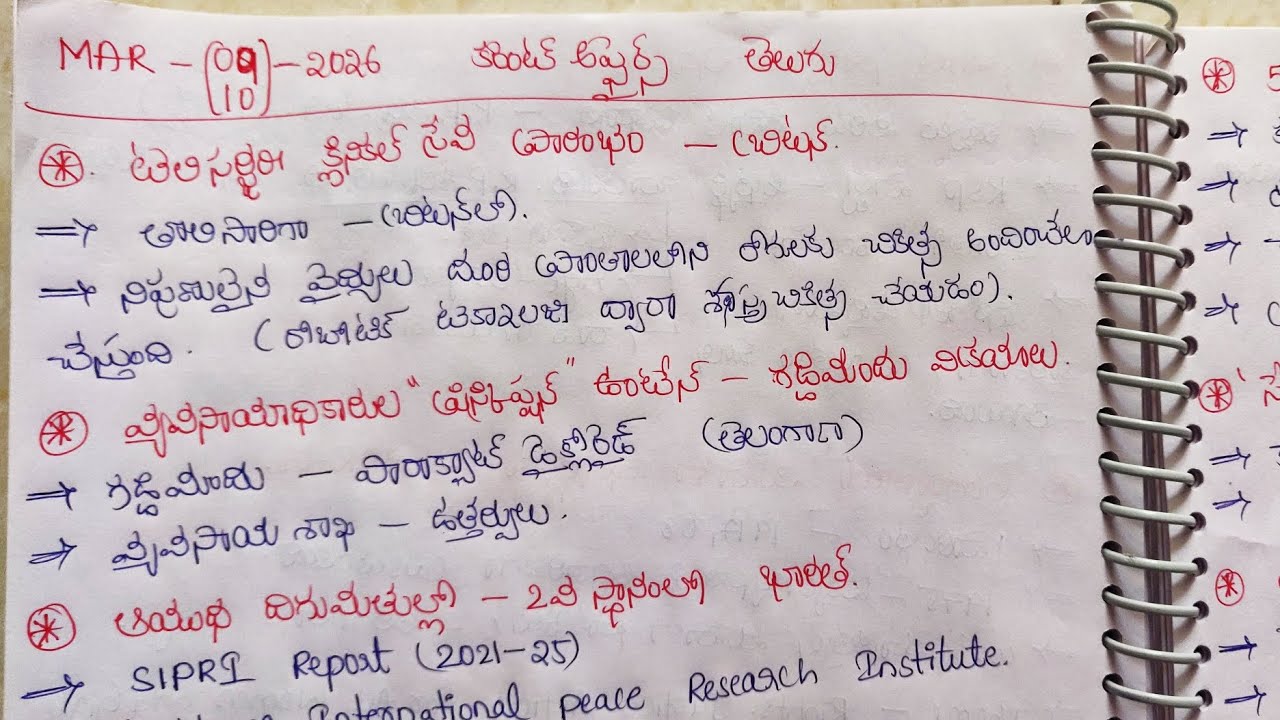 MAR - (09/10) - 2026 కరెంట్ అఫైర్స్ తెలుగు
టెలిసర్జరీ క్లినికల్ సేవ ప్రారంభం - బ్రిటన్.
⇒ తొలిసారిగా - బ్రిటన్‌లో.
⇒ నిపుణులైన వైద్యులు దూర ప్రాంతాలలోని రోగులకు చికిత్స అందించేలా
చేస్తుంది. (రోబోటిక్ టెక్నాలజీ ద్వారా శస్త్రచికిత్స చేయడం).
వ్యవసాయాధికారుల "ప్రిస్క్రిప్షన్" ఉంటేనే - గడ్డిమందు విక్రయాలు.
⇒ గడ్డిమందు - పారాక్వాట్ డైక్లోరైడ్ (తెలంగాణ)
⇒ వ్యవసాయ శాఖ - ఉత్తర్వులు.
ఆయుధ దిగుమతుల్లో - 2వ స్థానంలో భారత్.
⇒ SIPRI Report (2021-25)
International peace Research Institute.
5